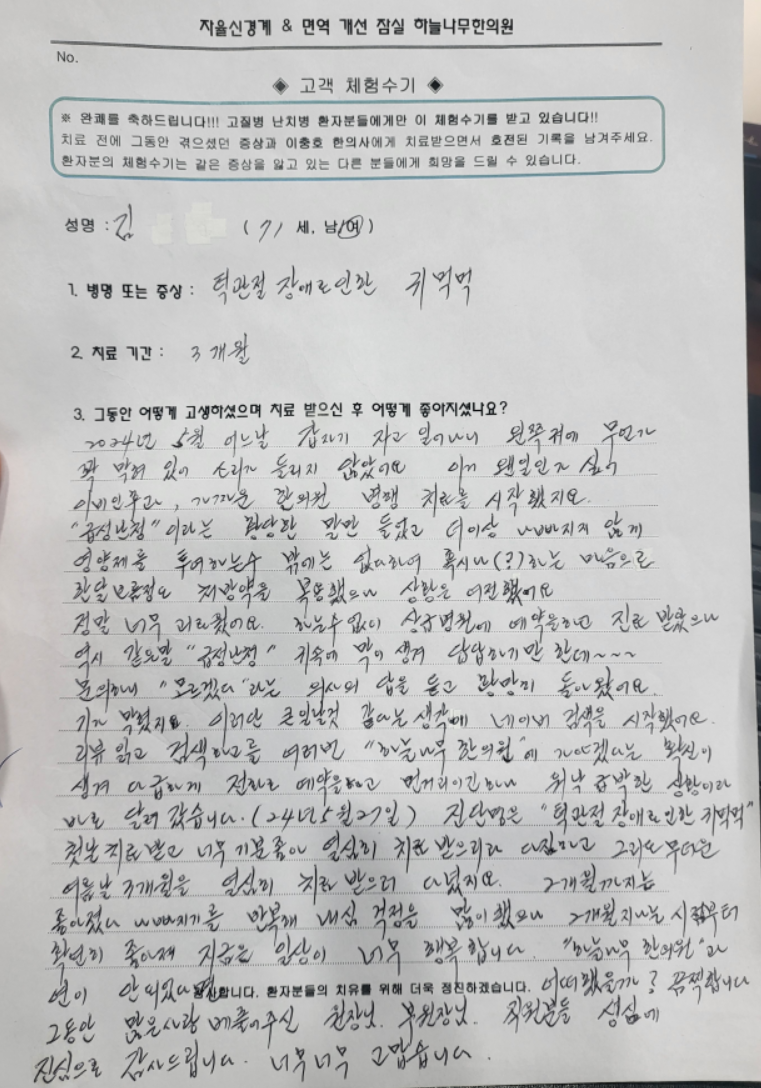 자율신경계 & 면역 개선 잠실 하늘나무한의원
No.
◈ 고객 체험수기 ◈
※ 완쾌를 축하드립니다!!! 고질병 난치병 환자분들에게만 이 체험수기를 받고 있습니다!!
치료 전에 그동안 겪으셨던 증상과 이충호 한의사에게 치료받으면서 호전된 기록을 남겨주세요.
환자분의 체험수기는 같은 증상을 앓고 있는 다른 분들에게 희망을 드릴 수 있습니다.
성명 : 김 ( 71 세, 남/여 )
1. 병명 또는 증상 : 턱관절 장애로인한 귀먹먹
2. 치료 기간 : 3개월
3. 그동안 어떻게 고생하셨으며 치료 받으신 후 어떻게 좋아지셨나요?
2024년 5월 어느날 갑자기 자고 일어나니 왼쪽귀에 무언가
꽉 막혀 있어 소리가 들리지 않았어요 이게 웬일인가 싶어
이비인후과, 가까운 한의원 병행 치료를 시작했지요.
"급성난청"이라는 황당한 말만 들었고 더이상 나빠지지 않게
영양제를 투여하는수 밖에는 없다하여 혹시나(?)하는 마음으로
한달보름정도 처방약을 복용했으나 상황은 여전했어요
정말 너무 괴로웠어요. 하는수없이 상급병원에 예약을하고 진료 받았으나
역시 같은말 "급성난청" 귀속에 막이 생겨 답답하기만 한데~~~
문의하니 "모르겠다"라는 의사의 답을 듣고 황망히 돌아왔어요.
기가 막혔지요. 이러단 큰일날것 같다는 생각에 네이버 검색을 시작했어요.
리뷰 읽고 검색하고를 여러번 "하늘나무 한의원"에 가야겠다는 확신이
생겨 다급하게 전화로 예약을하고 먼거리이긴하나 워낙 급박한 상황이라
바로 달려 갔습니다. (24년5월27일) 진단명은 "턱관절 장애로 인한 귀먹먹"
첫날 치료 받고 너무 기분좋아 열심히 치료 받으리라 다짐하고 그리도 무더운
여름날 3개월을 열심히 치료 받으러 다녔지요. 2개월까지는
좋아졌다 나빠지기를 반복해 내심 걱정을 많이 했으나 2개월 지나는 시점부터
확연히 좋아져 지금은 일상이 너무 행복합니다. "하늘나무 한의원"과
연이 안되었다면 어떠했을까? 끔찍합니다
감사합니다. 환자분들의 치유를 위해 더욱 정진하겠습니다.
그동안 많은사랑 베풀어주신 원장님. 부원장님. 직원분들 성심에
진심으로 감사드립니다. 너무너무 고맙습니다.